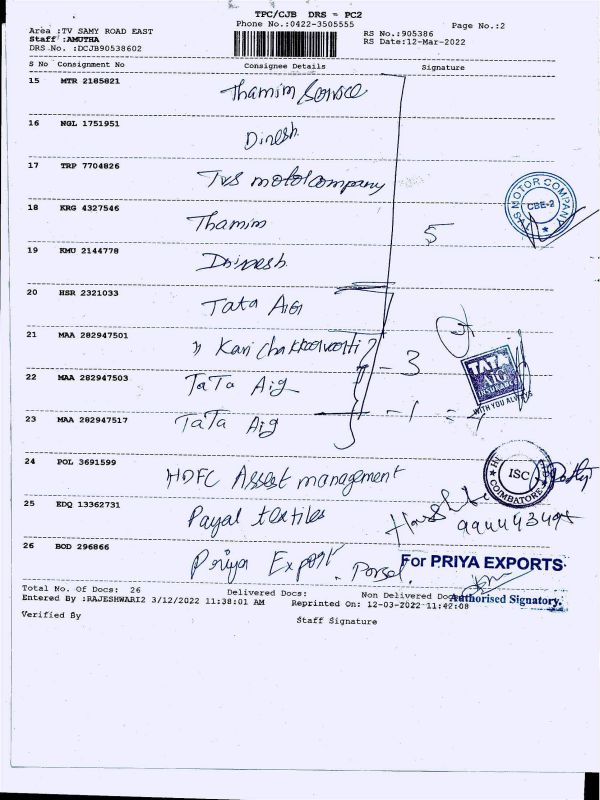 TPC/CJB DRS = PC2
Phone No.:0422-3505555
Page No.:2
Area :TV SAMY ROAD EAST
Staff :AMUTHA
DRS No. :DCJB90538602
RS No.:905386
RS Date:12-Mar-2022
S No Consignment No Consignee Details Signature
15 MTR 2185821 Thamim Service
16 NGL 1751951 Dinesh
17 TRP 7704826 TVS motor company
TVS MOTOR COMPANY
CBE-2
18 KRG 4327546 Thamim
5
19 KMU 2144778 Dinesh
20 HSR 2321033 Tata AIG
21 MAA 282947501
- 3
22 MAA 282947503 TaTa Aig
TATA
AIG
WITH YOU ALWAYS
23 MAA 282947517 TaTa Aig
- 1 =
24 POL 3691599 HDFC Asset management
ISC
COIMBATORE
25 EDQ 13362731 Payal textiles
26 BOD 296866 Priya Export
For PRIYA EXPORTS
Authorised Signatory.
Total No. Of Docs: 26 Delivered Docs: Non Delivered Docs
Entered By :RAJESHWARI2 3/12/2022 11:38:01 AM Reprinted On: 12-03-2022 11:42:08
Verified By Staff Signature